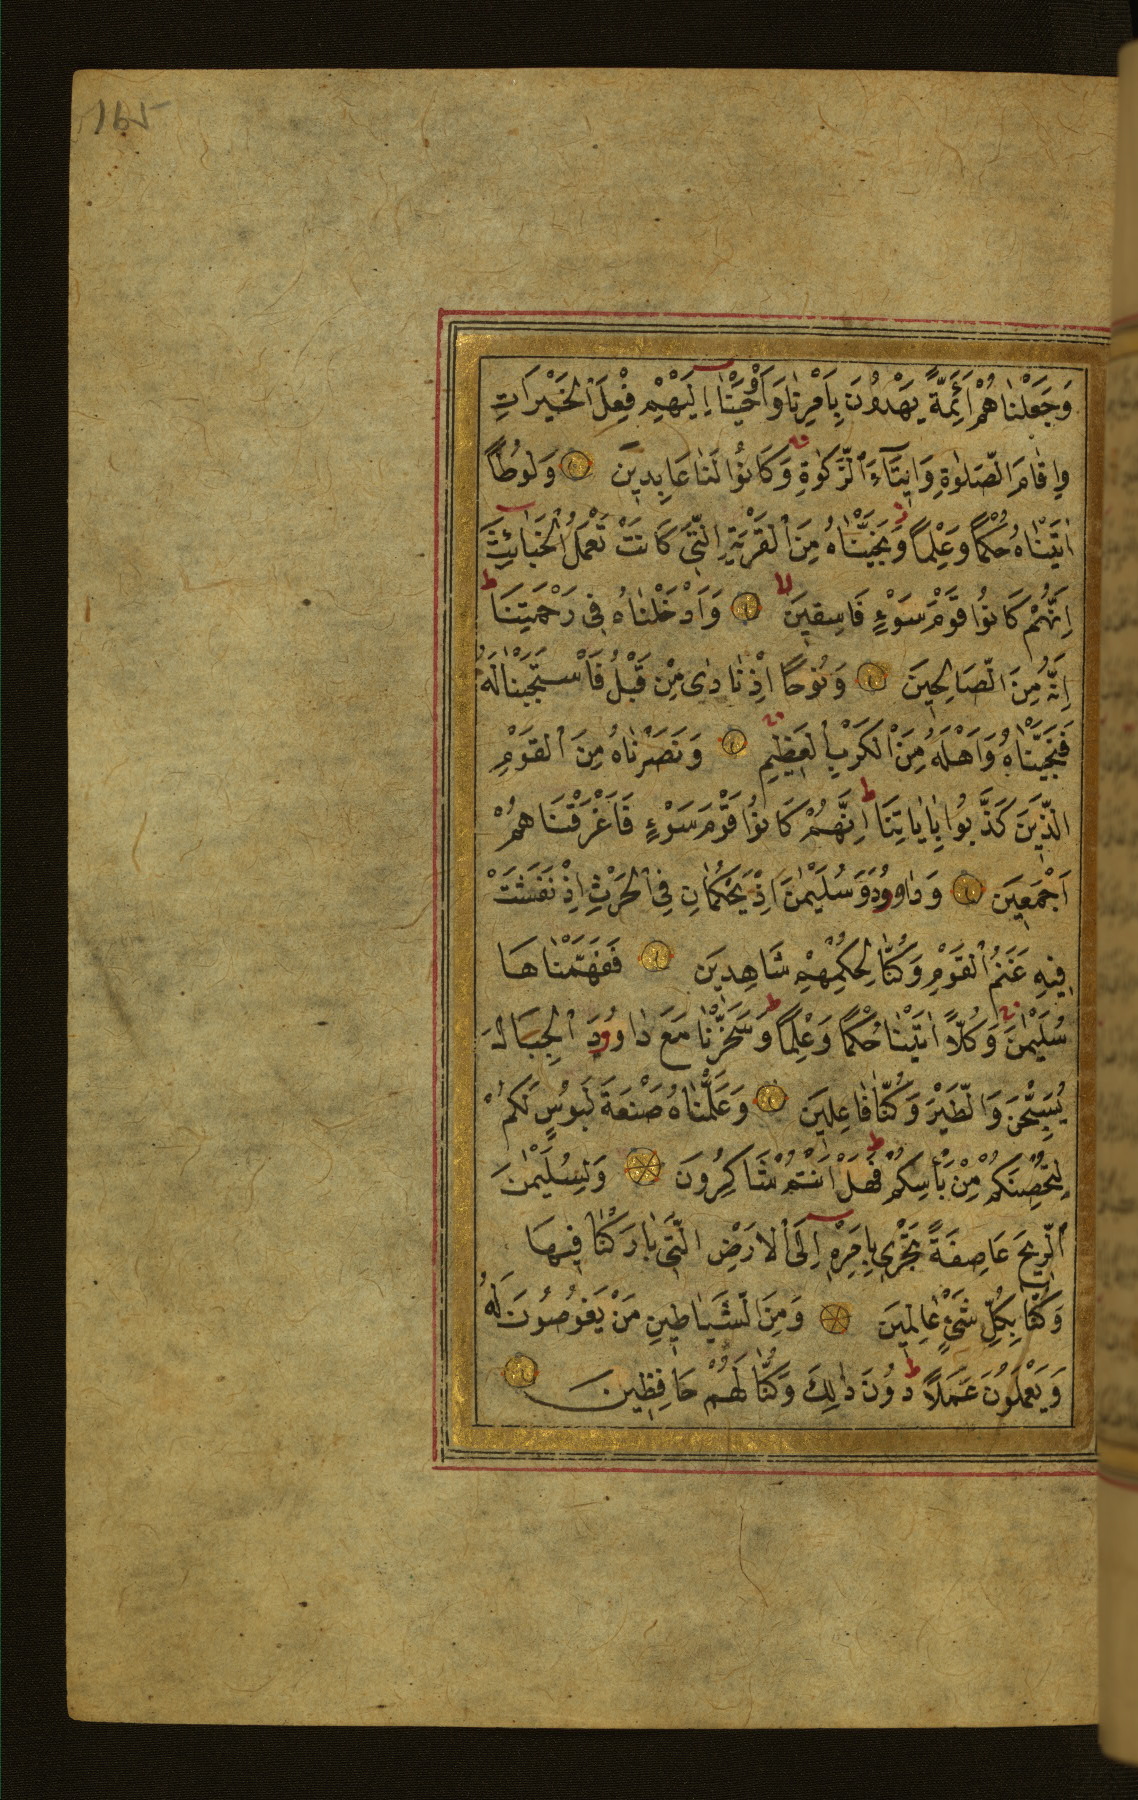 165
وَجَعَلْنَاهُمْ أَئِمَّةً يَهْدُونَ بِاَمْرِنَا وَاَوْحَيْنَا اِلَيْهِمْ فِعْلَ الْخَيْرَاتِ
وَاِقَامَ الصَّلٰوةِ وَاِيتَآءَ الزَّكٰوةِ وَكَانُوا لَنَا عَابِدِينَ وَلُوطًا
اٰتَيْنَاهُ حُكْمًا وَعِلْمًا وَنَجَّيْنَاهُ مِنَ الْقَرْيَةِ الَّتِى كَانَتْ تَعْمَلُ الْخَبَائِثَ
اِنَّهُمْ كَانُوا قَوْمَ سَوْءٍ فَاسِقِينَ وَاَدْخَلْنَاهُ فِى رَحْمَتِنَا
اِنَّهُ مِنَ الصَّالِحِينَ وَنُوحًا اِذْ نَادٰى مِنْ قَبْلُ فَاسْتَجَبْنَا لَهُ
فَنَجَّيْنَاهُ وَاَهْلَهُ مِنَ الْكَرْبِ الْعَظِيمِ وَنَصَرْنَاهُ مِنَ الْقَوْمِ
الَّذِينَ كَذَّبُوا بِاٰيَاتِنَا اِنَّهُمْ كَانُوا قَوْمَ سَوْءٍ فَاَغْرَقْنَاهُمْ
اَجْمَعِينَ وَدَاوُودَ وَسُلَيْمٰنَ اِذْ يَحْكُمَانِ فِى الْحَرْثِ اِذْ نَفَشَتْ
فِيهِ غَنَمُ الْقَوْمِ وَكُنَّا لِحُكْمِهِمْ شَاهِدِينَ فَفَهَّمْنَاهَا
سُلَيْمٰنَ وَكُلًّا اٰتَيْنَا حُكْمًا وَعِلْمًا وَسَخَّرْنَا مَعَ دَاوُودَ الْجِبَالَ
يُسَبِّحْنَ وَالطَّيْرَ وَكُنَّا فَاعِلِينَ وَعَلَّمْنَاهُ صَنْعَةَ لَبُوسٍ لَكُمْ
لِتُحْصِنَكُمْ مِنْ بَأْسِكُمْ فَهَلْ اَنْتُمْ شَاكِرُونَ وَلِسُلَيْمٰنَ
الرِّيحَ عَاصِفَةً تَجْرِى بِاَمْرِهِ اِلَى الْاَرْضِ الَّتِى بَارَكْنَا فِيهَا
وَكُنَّا بِكُلِّ شَىْءٍ عَالِمِينَ وَمِنَ الشَّيَاطِينِ مَنْ يَغُوصُونَ لَهُ
وَيَعْمَلُونَ عَمَلًا دُونَ ذٰلِكَ وَكُنَّا لَهُمْ حَافِظِينَ